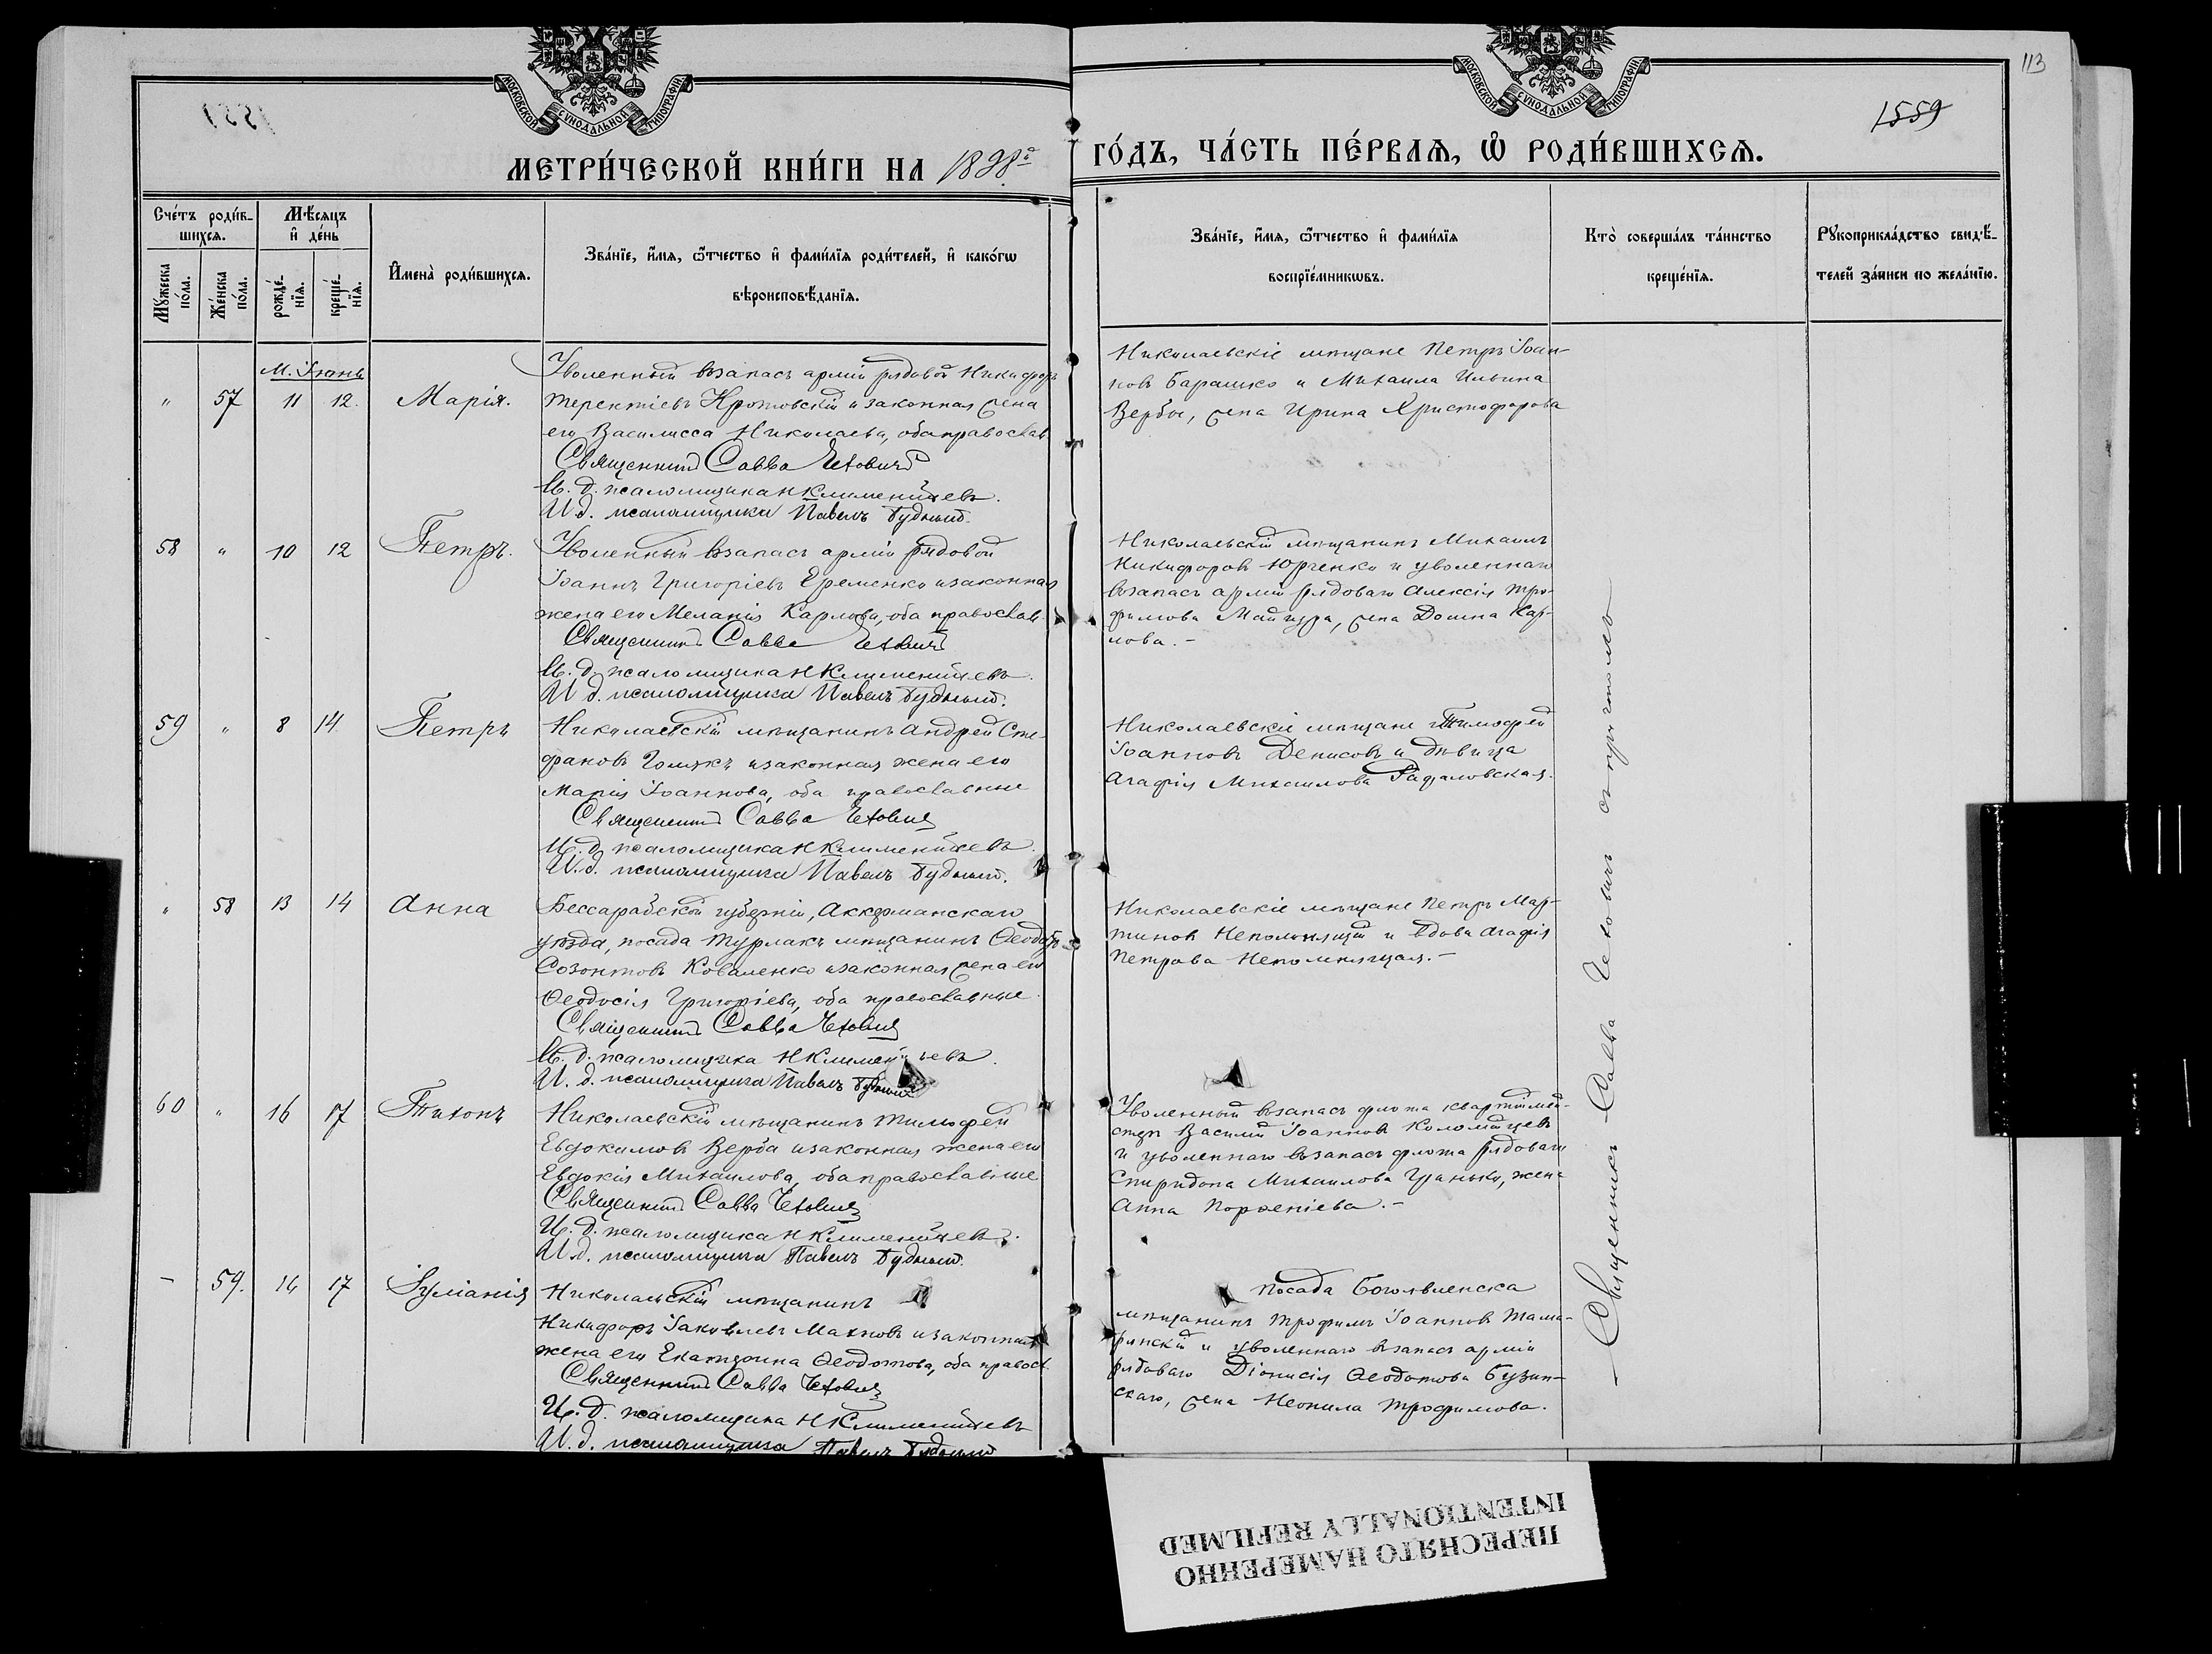 113
1559
МОСКОВСКОЙ СѴНОДАЛЬНОЙ ТИПОГРАФІИ
МОСКОВСКОЙ СѴНОДАЛЬНОЙ ТИПОГРАФІИ
МЕТРИ́ЧЕСКОЙ КНИ́ГИ НА 1898й ГО́ДЪ, ЧА́СТЬ ПЕ́РВАѦ, Ѡ РОДИ́ВШИХСѦ.
Сче́тъ роди́в-
шихсѧ.
Мꙋ́жеска по́ла.
Же́нска по́ла.
Мѣ́сѧцъ
и҆ де́нь
рожде́-
нїѧ.
креще́-
нїѧ.
И҆мена̀ роди́вшихсѧ.
Зва́нїе, и҆́мѧ, ѻ҆́тчество и҆ фами́лїѧ роди́телей, и҆ како́гѡ
вѣроисповѣ́данїѧ.
Зва́нїе, и҆́мѧ, ѻ҆́тчество и҆ фами́лїѧ
воспрїе́мникѡвъ.
Кто̀ соверша́лъ та́инство
креще́нїѧ.
Рꙋкоприкла́дство свидѣ́-
телей за́писи по жела́нїю.
М. Іюнь
" 57 11 12. Марія.
Уволенный въ запасъ арміи рядовой Никифоръ
Терентіевъ Кротовскій и законная жена
его Василисса Николаева, оба православ.
Священникъ Савва Чехович
И. д. псаломщика Н Климентьевъ.
И. д. псаломщика Павелъ Будный.
Николаевскіе мѣщане Петръ Іоан-
новъ Барашко и Михаила Ильина
Вербы, жена Ирина Христофорова
58 " 10 12 Петръ.
Уволенный въ запасъ арміи рядовой
Іоаннъ Григоріевъ Еременко и законная
жена его Меланія Карлова, оба православ.
Священникъ Савва Чехович
И. д. псаломщика Н Климентьевъ.
И. д. псаломщика Павелъ Будный.
Николаевскій мѣщанинъ Михаилъ
Никифоровъ Юрченко и уволеннаго
въ запасъ арміи рядоваго Алексія Тро-
фимова Майгура, жена Домна Кар-
лова. -
59 " 8 14. Петръ
Николаевскій мѣщанинъ Андрей Сте-
фановъ Голякъ и законная жена его
Марія Іоаннова, оба православные
Священникъ Савва Чехович
И. д. псаломщика Н Климентьевъ.
И. д. псаломщика Павелъ Будный.
Николаевскіе мѣщане Тимофей
Іоанновъ Денисовъ и дѣвица
Агафія Михаилова
" 58 13 14 Анна
Бессарабской губерніи, Аккерманскаго
уѣзда, посада Турлакъ мѣщанинъ Ѳеодоръ
Созонтовъ Коваленко и законная жена его
Ѳеодосія Григоріева, оба православные.
Священникъ Савва Чехович
И. д. псаломщика Н Климентьевъ.
И. д. псаломщика Павелъ Будный
Николаевскіе мѣщане Петръ Мар-
тиновъ Непомнящій и вдова Агафія
Петрова Непомнящая. -
60 " 16 17 Тихонъ
Николаевскій мѣщанинъ Тимофей
Евдокимовъ Верба и законная жена его
Евдокія Михаилова, оба православные
Священникъ Савва Чехович
И. д. псаломщика Н Климентьевъ.
И. д. псаломщика Павелъ Будный.
Уволенный въ запасъ флота квартирмей-
стеръ Василій Іоанновъ Коломійцевъ
и уволеннаго въ запасъ флота рядоваго
Спиридона Михаилова Гранько, жена
Анна Порфеніева. -
- 59. 16 17 Іуліанія
Николаевскій мѣщанинъ
Никифоръ Іаковлевъ Махновъ и законная
жена его Екатерина Ѳеодотова, оба правосл.
Священникъ Савва Чехович
И. д. псаломщика Н Климентьевъ
И. д. псаломщика Павелъ Будный
посада Богоявленска
мѣщанинъ Трофимъ Іоанновъ Тама-
ринскій и уволеннаго въ запасъ арміи
рядоваго Діонисія Ѳеодотова Бузин-
скаго, жена Неонила Трофимова.
Священникъ Савва Чеховичъ съ причтомъ
ПЕРЕСНЯТО НАМЕРЕННО
INTENTIONALLY REFILMED